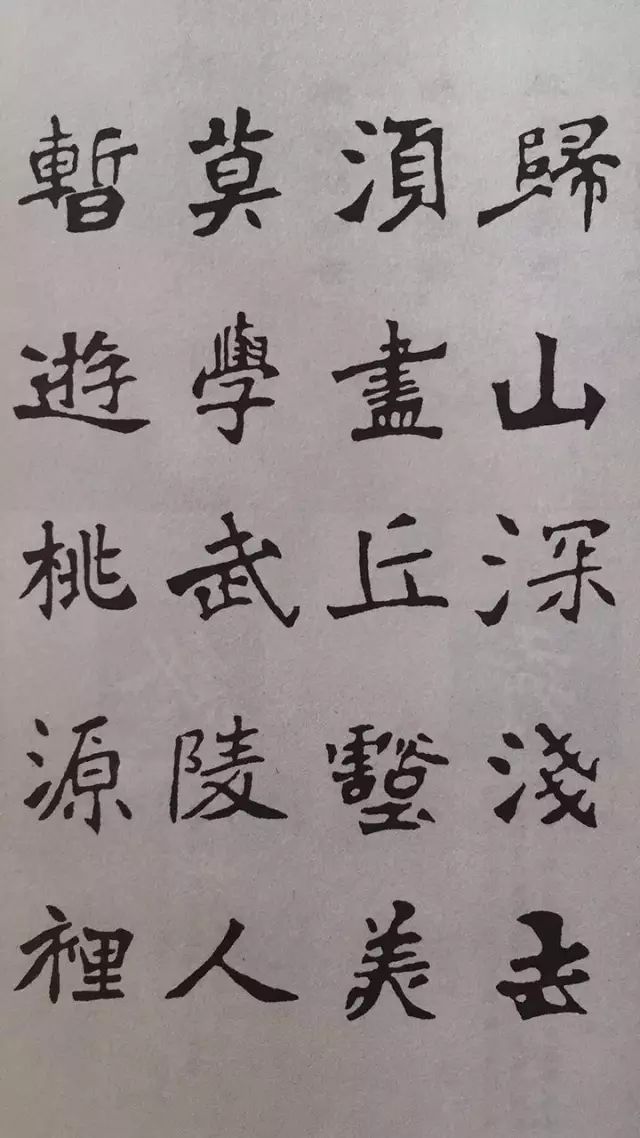 歸山深淺去
須盡丘壑美
莫學武陵人
暫遊桃源裡